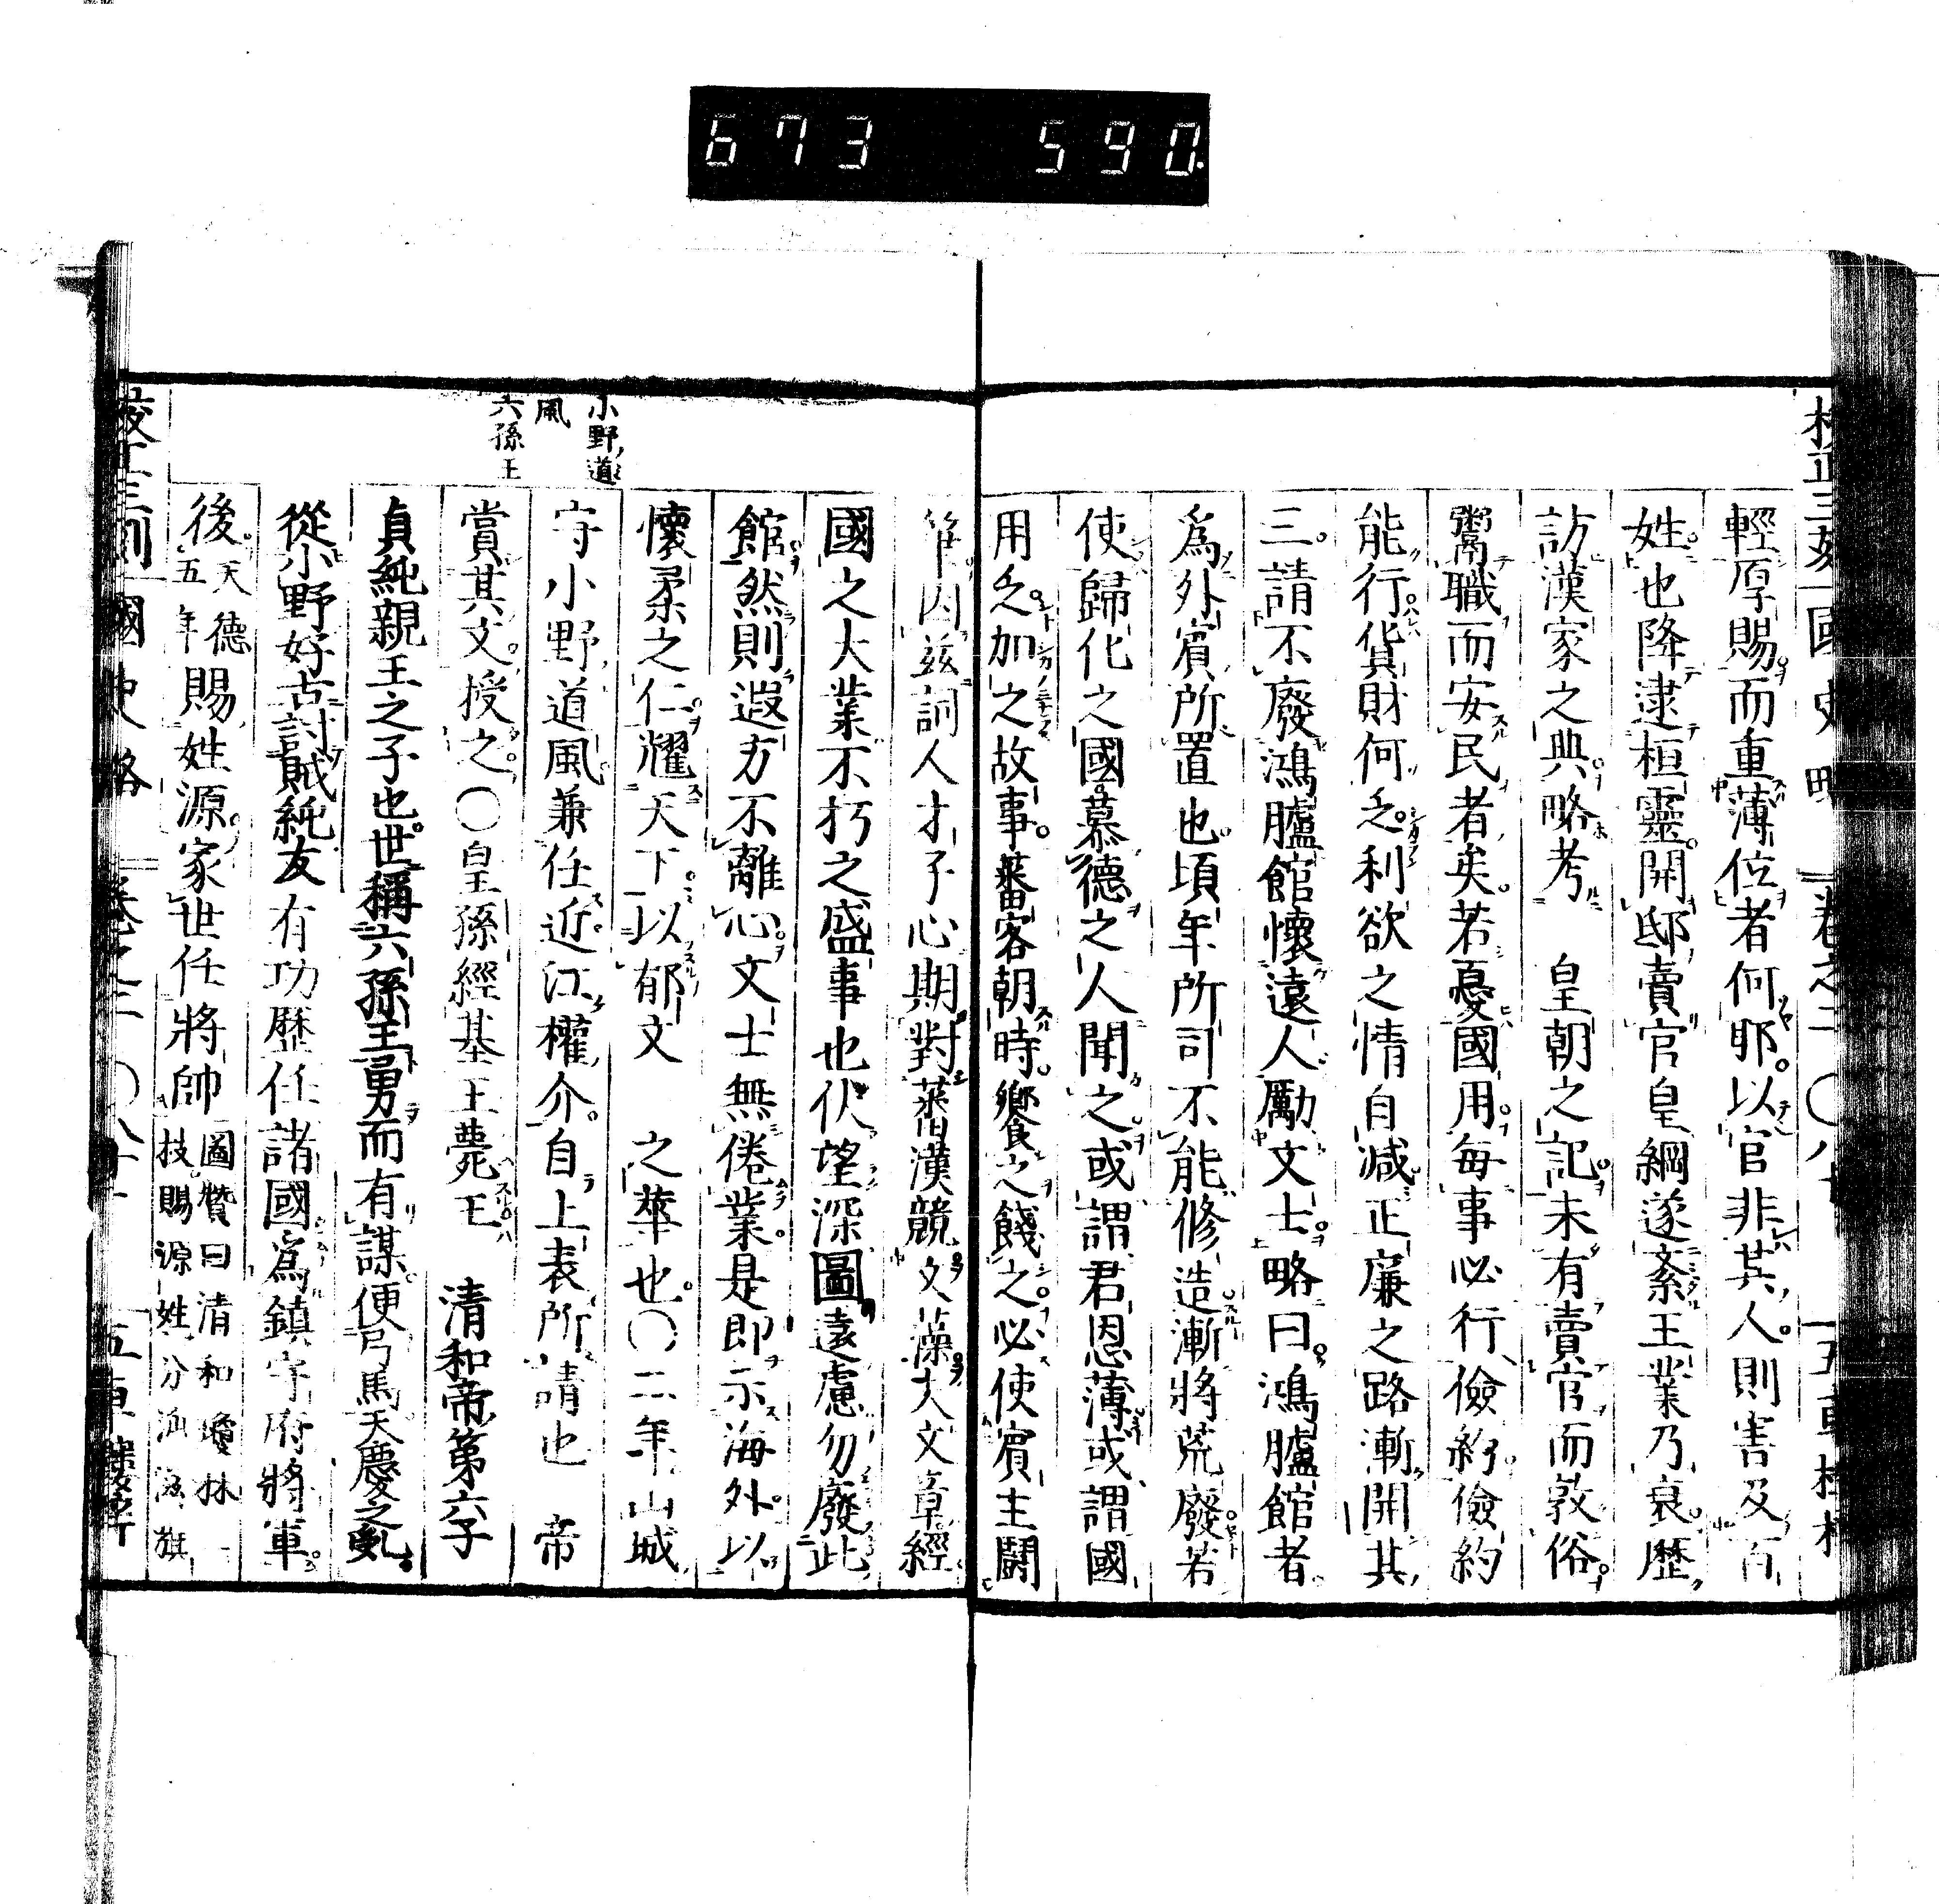 673 590
國史略
卷之二
輕厚賜而重薄位者何耶以官非其人則害及百
姓也降逮桓靈開邸賣官皇綱遂紊王業乃衰歷
訪漢家之典略考 皇朝之記未有賣官而敦俗
鬻職而安民者矣若憂國用每事必行儉約儉約
能行貨財何乏利欲之情自減正廉之路漸開其
三請不廢鴻臚館懷遠人勵文士略曰鴻臚館者
爲外賓所置也頃年所司不能修造漸將荒廢若
使歸化之國慕德之人聞之或謂君恩薄或謂國
用乏加之故事蕃客朝時饗之餞之必使賓主鬪
筆因玆詞人才子心期對蕃漢競文藻大文章經
國之大業不朽之盛事也伏望深圖遠慮勿廢此
館然則遐方不離心文士無倦業是即示海外以
懷柔之仁耀天下以郁文 之華也〇二年山城
守小野道風兼任近江權介自上表所請也 帝
賞其文授之〇皇孫經基王薨王 清和帝第六子
貞純親王之子也世稱六孫王勇而有謀便弓馬天慶之亂
從小野好古討賊純友有功歷任諸國爲鎭守府將軍
後天德五年賜姓源家世任將帥圖贊曰清和瓊林一
技賜源姓分派旗
小野道
風
六孫王
國史略